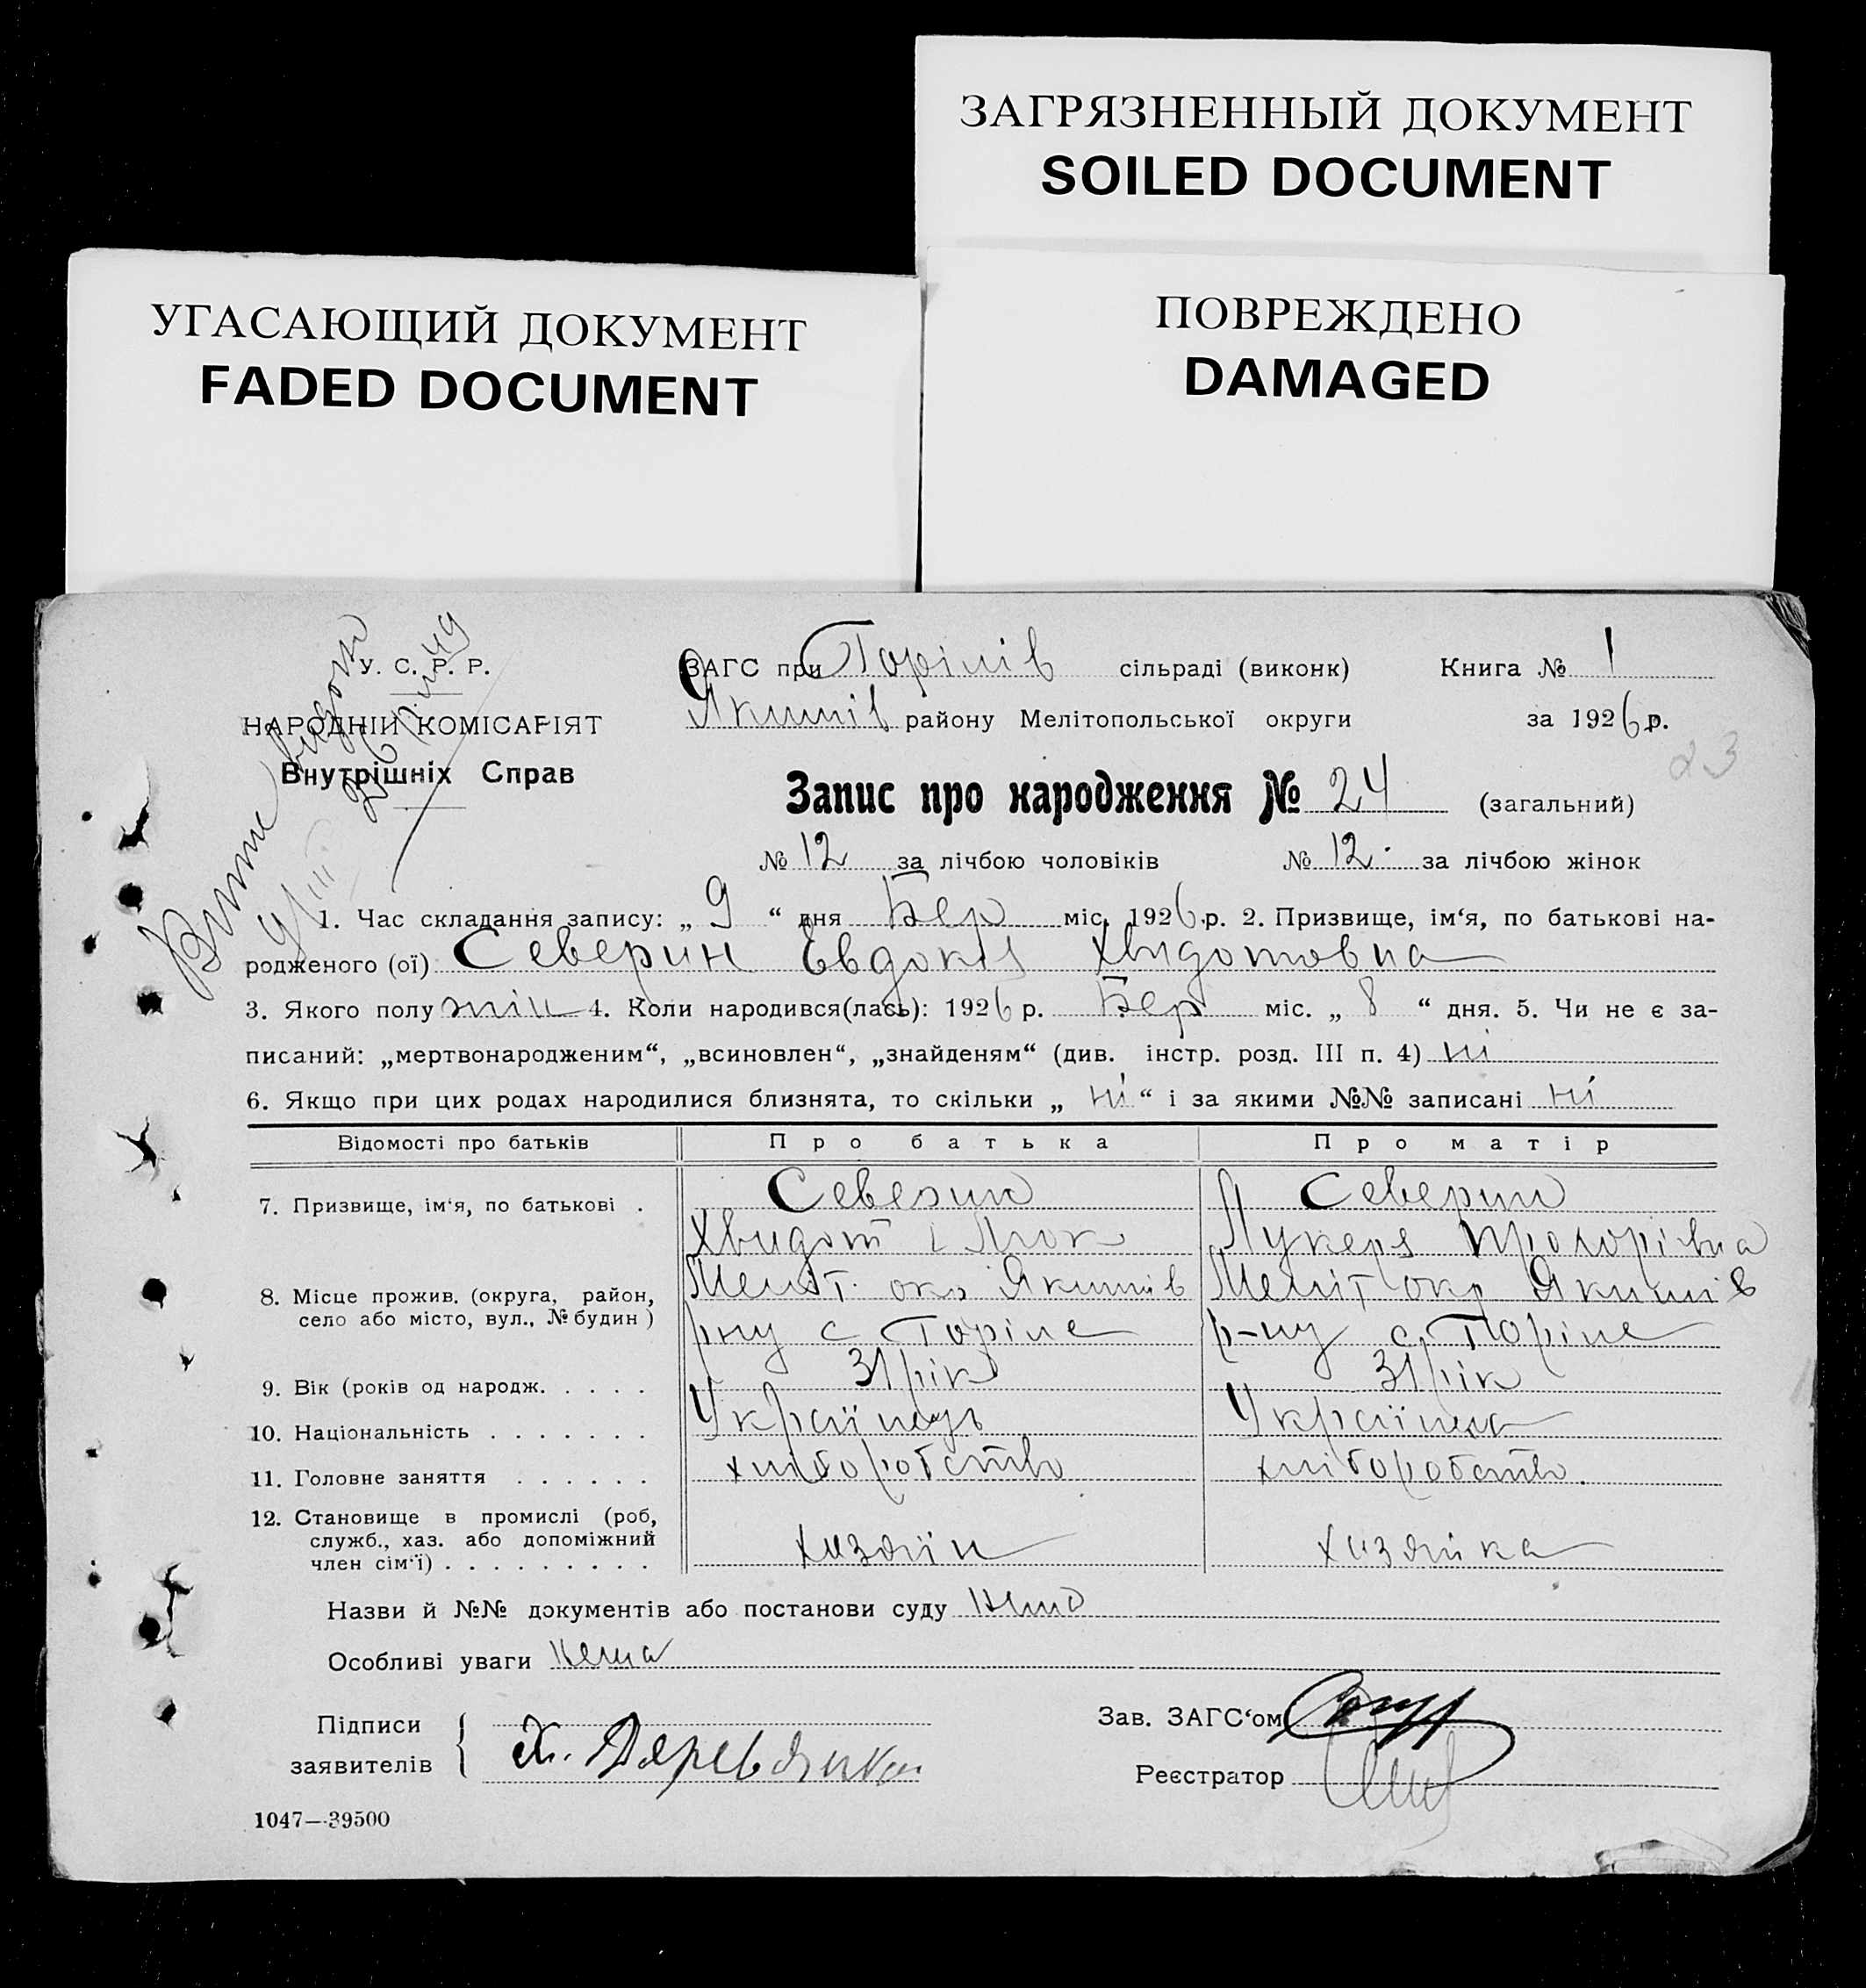 ЗАГРЯЗНЕННЫЙ ДОКУМЕНТ
SOILED DOCUMENT
УГАСАЮЩИЙ ДОКУМЕНТ
FADED DOCUMENT
ПОВРЕЖДЕНО
DAMAGED
У. С. Р. Р.
НАРОДНІЙ КОМІСАРІЯТ
Внутрішніх Справ
ЗАГС при Горілів сільраді (виконк) Книга № 1
Якимів району Мелітопольської округи за 1926 р.
23
Запис про народження № 24 (загальний)
№ 12 за лічбою чоловіків № 12 за лічбою жінок
1. Час складання запису: „ 9 “ дня Бер міс. 1926 р. 2. Призвище, ім‘я, по батькові на-
родженого (ої) Северин Евдокія Хвидотовна
3. Якого полу жін 4. Коли народився(лась): 1926 р. Бер міс. „ 8 “ дня. 5. Чи не є за-
писаний: „мертвонародженим“, „всиновлен“, „знайденям“ (див. інстр. розд. III п. 4) ні
6. Якщо при цих родах народилися близнята, то скільки „ ні “ і за якими №№ записані ні
Відомості про батьків Про батька Про матір
7. Призвище, ім‘я, по батькові . Северин Северин
Хвидот Лукеря Прохорівна
8. Місце прожив. (округа, район, Меліт. окр Якимів Меліт окр Якимів
село або місто, вул., № будин) рну с Горіле р-ну с. Горіле
9. Вік (років од народж. . . . . 31 рік 31 рік
10. Національність . . . . . . . Українець Українка
11. Головне заняття . . . . . . хліборобство хліборобство.
12. Становище в промислі (роб,
служб., хаз. або допоміжний хазяїн хазяйка
член сім‘ї) . . . . . . . . .
Назви й №№ документів або постанови суду Нема
Особливі уваги нема
Підписи Зав. ЗАГС‘ом
заявителів Реєстратор
1047—39500